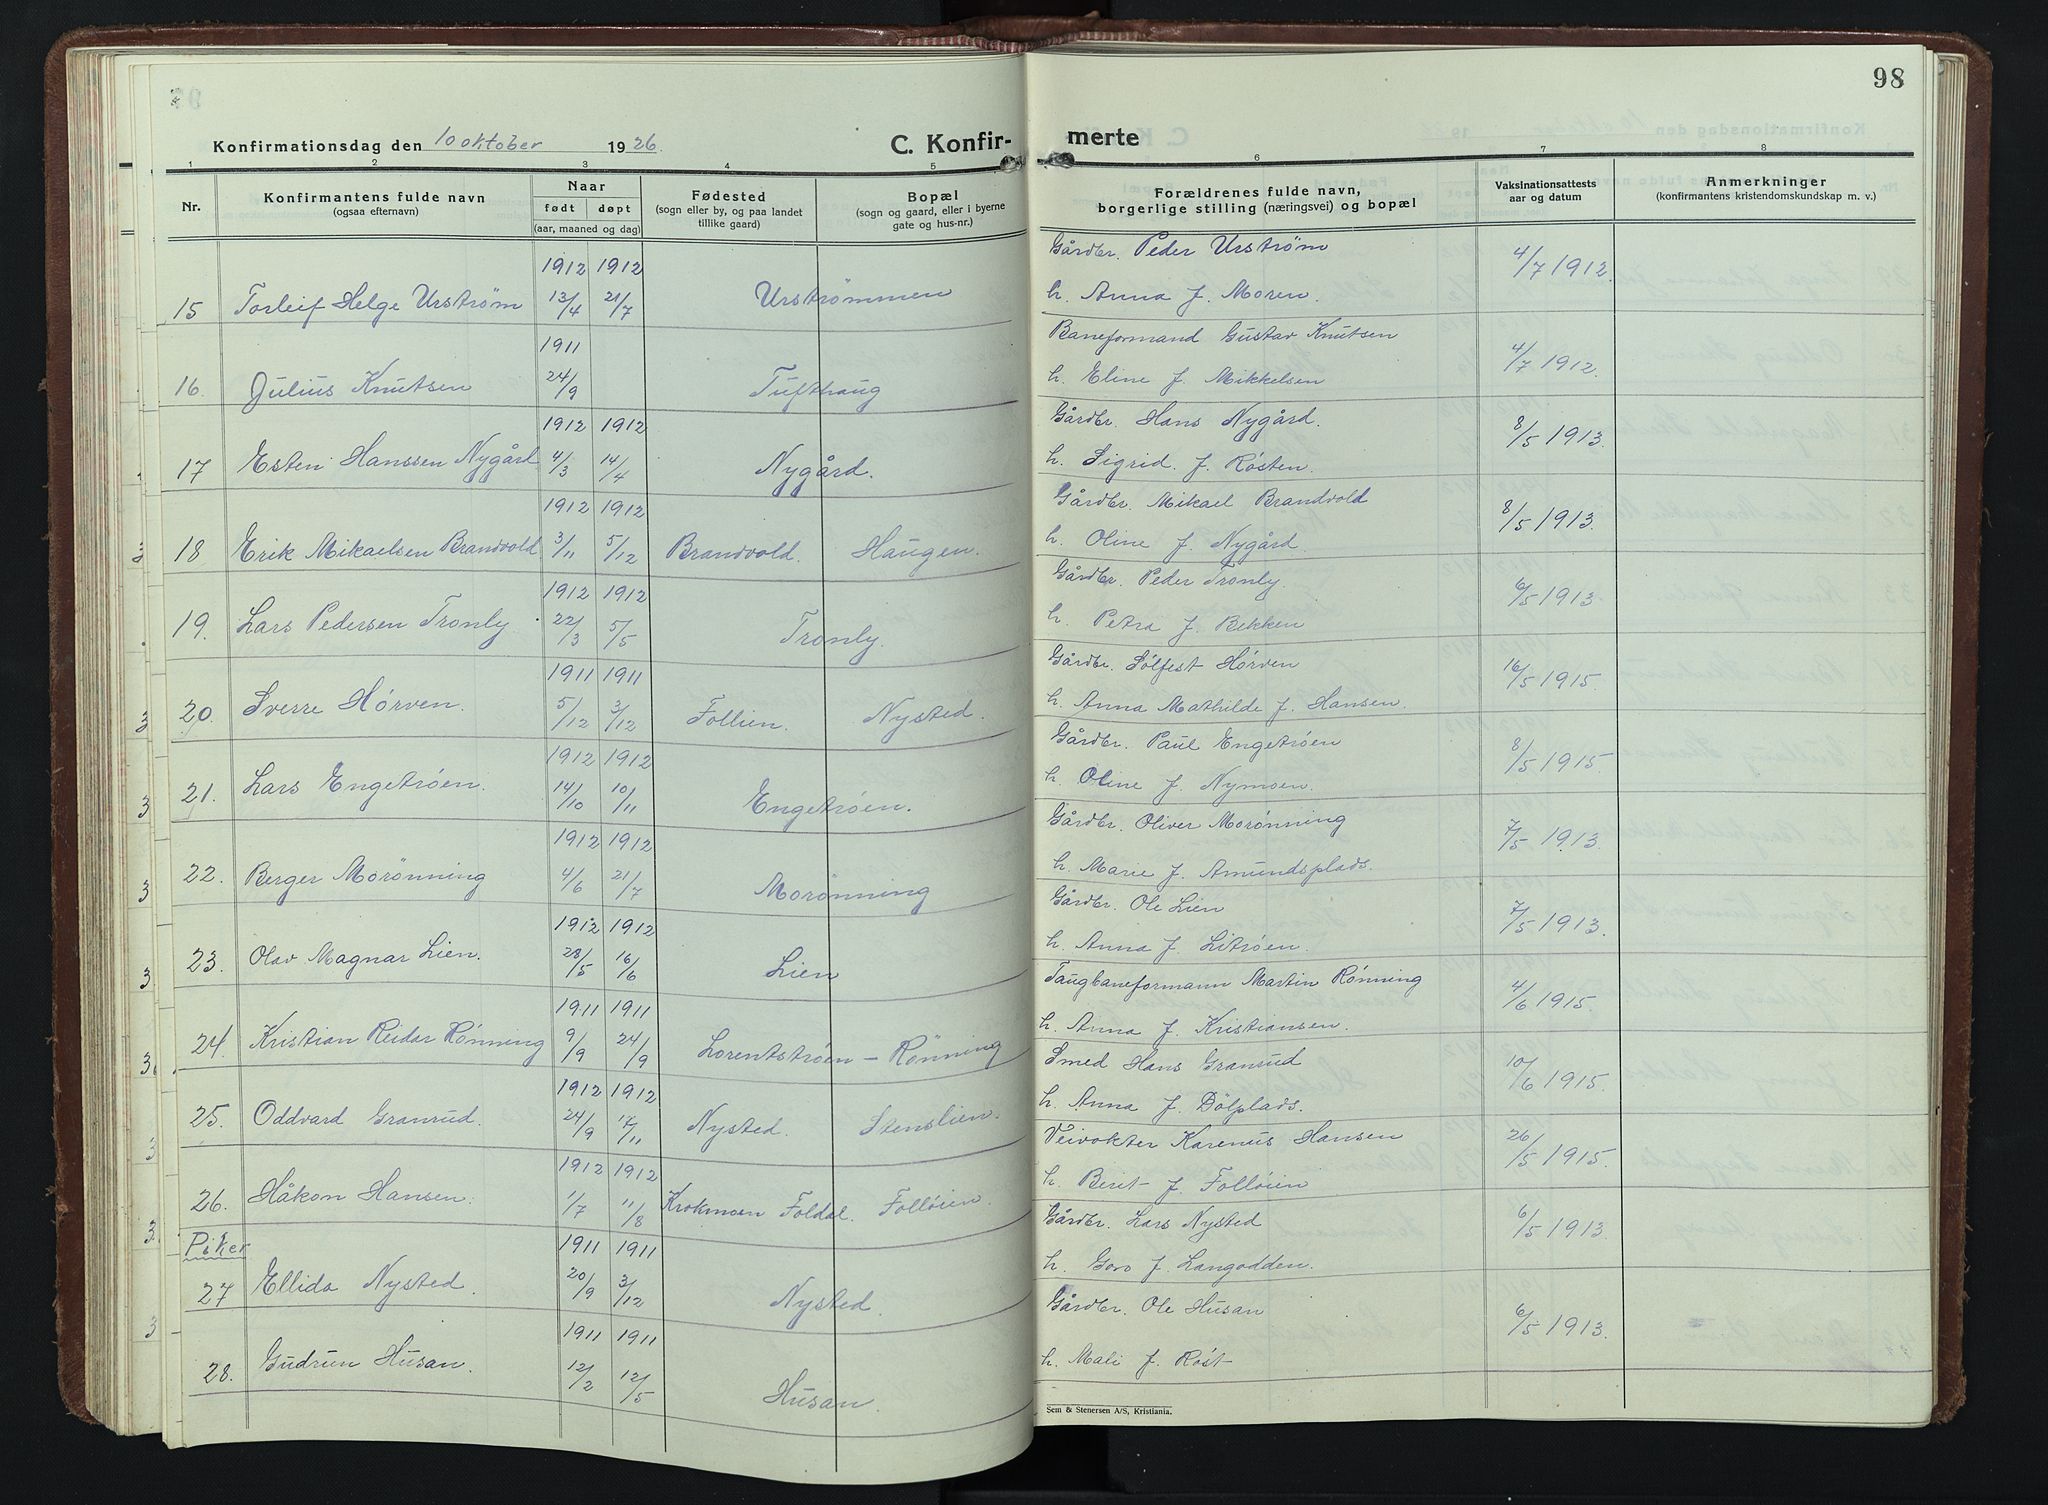 98
Konfirmationsdag den 10 oktober 1926.
C. Konfirmerte
1 2 3 4 5 6 7 8
Nr.
Konfirmantens fulde navn
(ogsaa efternavn)
Naar
født døpt
(aar, maaned og dag)
Fødested
(sogn eller by, og paa landet
tillike gaard)
Bopæl
(sogn og gaard, eller i byerne
gate og hus-nr.)
Forældrenes fulde navn,
borgerlige stilling (næringsvei) og bopæl
Vaksinationsattests
aar og datum
Anmerkninger
(konfirmantens kristendomskundskap m. v.)
1912 1912 Gårdbr. Peder Urstrøm
15 Torleif Helge Urstrøm 13/4 21/7 Urstrømmen h. Anna f. Moren. 4/7 1912.
1911 Baneformand Gustav Knutsen
16. Julius Knutsen 24/9 Tufthaug h. Eline f. Mikkelsen 4/7 1912.
1912 1912 Gårdbr. Hans Nygård.
17 Esten Hanssen Nygård 4/3 14/4 Nygård. h. Sigrid f. Røsten. 8/5 1913.
1912 1912 Gårdbr. Mikael Brandvold
18 Erik Mikaelsen Brandvold 3/11 5/12 Brandvold. Haugen. h. Oline f. Nygård 8/5 1913.
1912 1912 Gårdbr. Peder Tronly.
19. Lars Pedersen Tronly 22/3 5/5 Tronly. h. Petra f. Bekken 6/5 1913.
1911 1911 Gårdbr. Sølfest Hørven
20. Sverre Hørven. 5/12 3/12 Follien. Nysted. h. Anna Mathilde f. Hansen. 16/5 1915.
1912 1912 Gårdbr. Paul Engetrøen
21. Lars Engetrøen. 14/10 10/11 Engetrøen. h. Oline f. Nymoen. 8/5 1915.
1912 1912 Gårdbr. Oliver Morønning
22. Berger Morønning 4/6 21/7 Morønning h. Marie f. Amundsplads. 7/5 1913.
1912 1912 Gårdbr. Ole Lien
23. Olav Magnar Lien. 28/5 16/6 Lien h. Anna f. Litrøen. 7/5 1913.
1911 1911 Taugbaneformann Martin Rønning
24. Kristian Reidar Rønning 9/9 24/9 Lorentstrøen – Rønning h. Anna f. Kristiansen. 4/6 1915.
1912 1912 Smed Hans Granrud
25. Oddvard Granrud. 24/9 17/11 Nysted. Stenslien. h. Anna f. Dölplads. 10/6 1915.
1912 1912 Veivokter Karenus Hansen
26. Håkon Hansen. 1/7 11/8 Krokmoen Foldal. Folløien. h. Berit f. Folløien 26/5 1915.
Piker 1911 1911 Gårdbr. Lars Nysted
27 Ellida Nysted. 20/9 3/12 Nysted. h. Goro f. Langodden. 6/5 1913.
1911 1911 Gårdbr. Ole Husan
28. Gudrun Husan. 12/2 12/5 Husan. h. Mali f. Røst 6/5 1913.
Sem & Stenersen A/S, Kristiania.